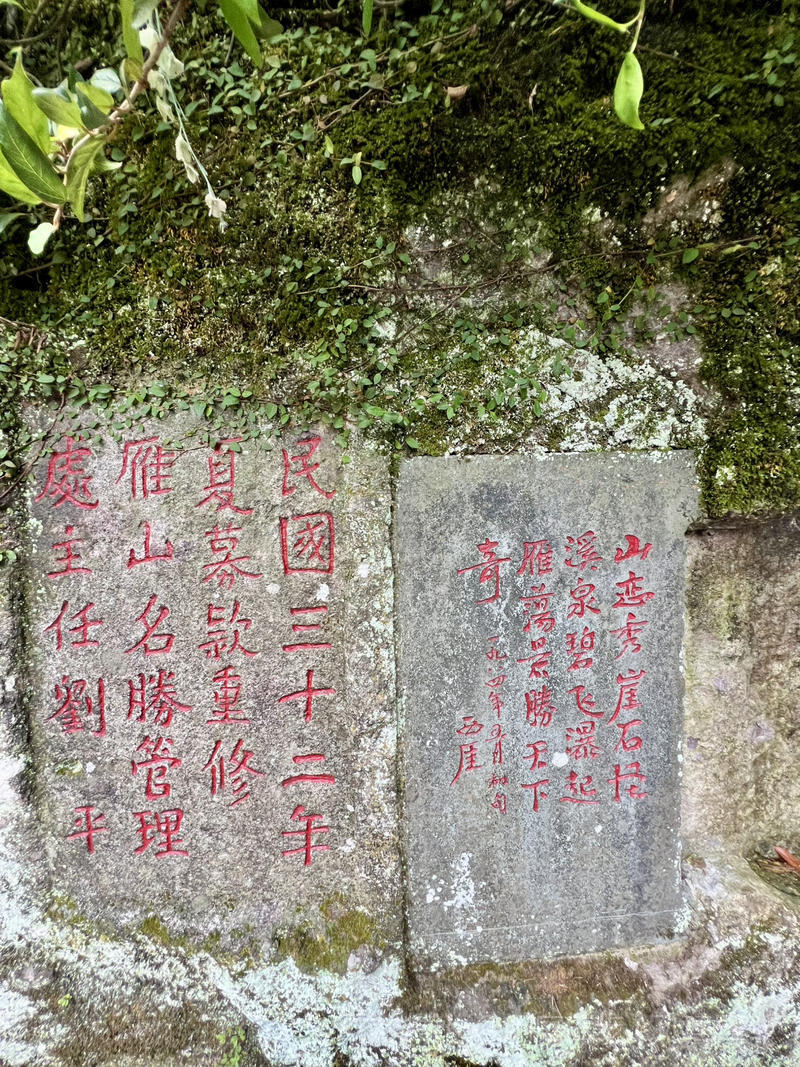 山峦秀崖石怪
溪泉碧飞瀑起
雁蕩景勝天下
奇
一九八四年五月初旬
西崖
民國三十二年
夏募款重修
雁山名勝管理
處主任劉平